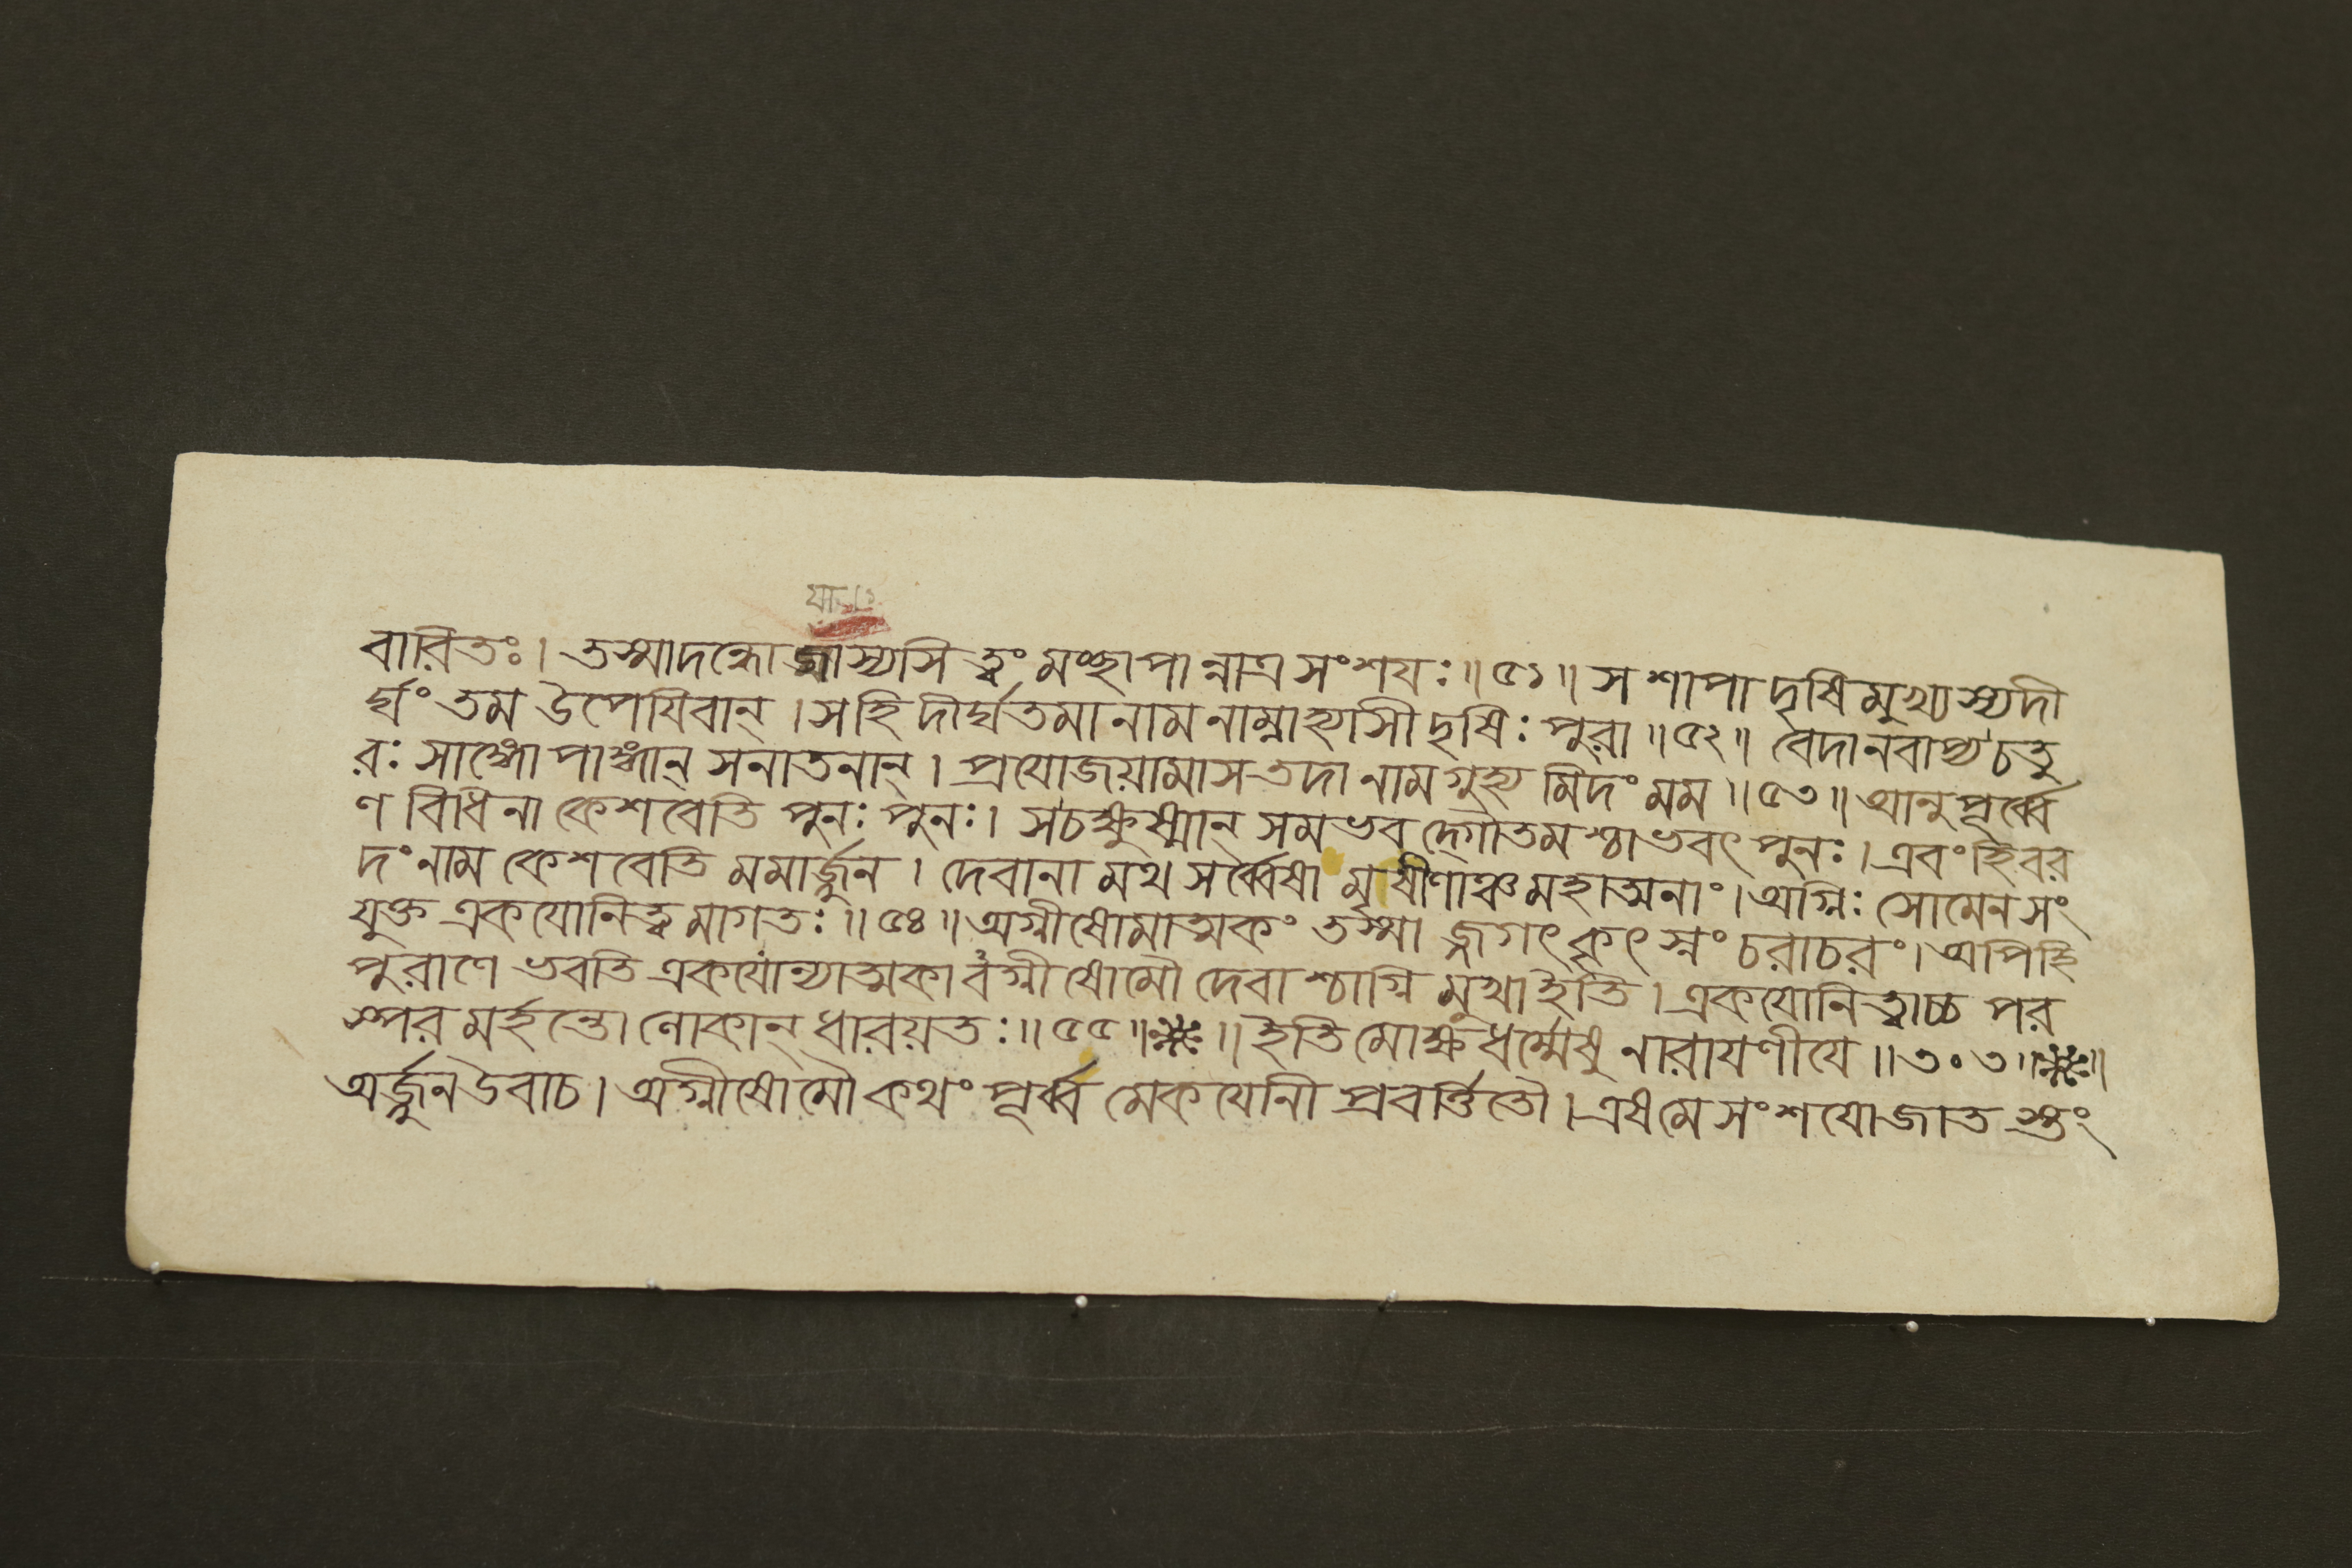 বারিতঃ। তস্মাদন্ধো জাস্যসি ত্বং মচ্ছাপান্নাত্র সংশযঃ॥৫১॥ স শাপাদৃষিমুখ্যস্য দী
র্ঘং তম উপেযিবান্। স হি দীর্ঘতমা নাম নাম্না হ্যাসীদৃষিঃ পুরা॥৫২॥ বেদানবাপ্য চতু
রঃ সাঙ্গোপাঙ্গান্ সনাতনান্। প্রযোজয়ামাস তদা নাম গুহ্যমিদং মম॥৫৩॥ আনুপূর্ব্বে
ণ বিধিনা কেশবেতি পুনঃ পুনঃ। স চক্ষুষ্মান্ সমভবদ্গৌতমশ্চাভবৎ পুনঃ। এবং হি বর
দং নাম কেশবেতি মমার্জ্জুন। দেবানামথ সর্ব্বেষামৃষীণাঞ্চ মহাত্মনাং। অগ্নিঃ সোমেন সং
যুক্ত একযোনিত্বমাগতঃ॥৫৪॥ অগ্নীষোমাত্মকং তস্মাজ্জগৎ কৃৎস্নং চরাচরং। অপি হি
পুরাণে ভবতি একযোন্যাত্মকাবগ্নীষোমৌ দেবাশ্চাগ্নিমুখা ইতি। একযোনিত্বাচ্চ পর
স্পরমর্হন্তো লোকান্ ধারয়তঃ॥৫৫॥ ॥ ইতি মোক্ষধর্ম্মেষু নারাযণীযে॥৩০৩॥ ॥
অর্জ্জুন উবাচ। অগ্নীষোমৌ কথং পূর্ব্বমেকযোনী প্রবর্ত্তিতৌ। এষ মে সংশযো জাতস্তং